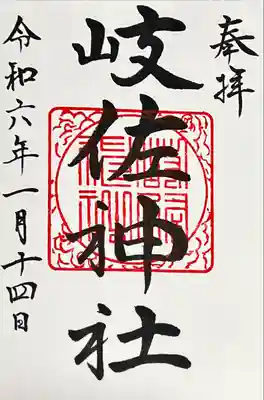 奉拝
岐佐神社
令和六年一月十四日